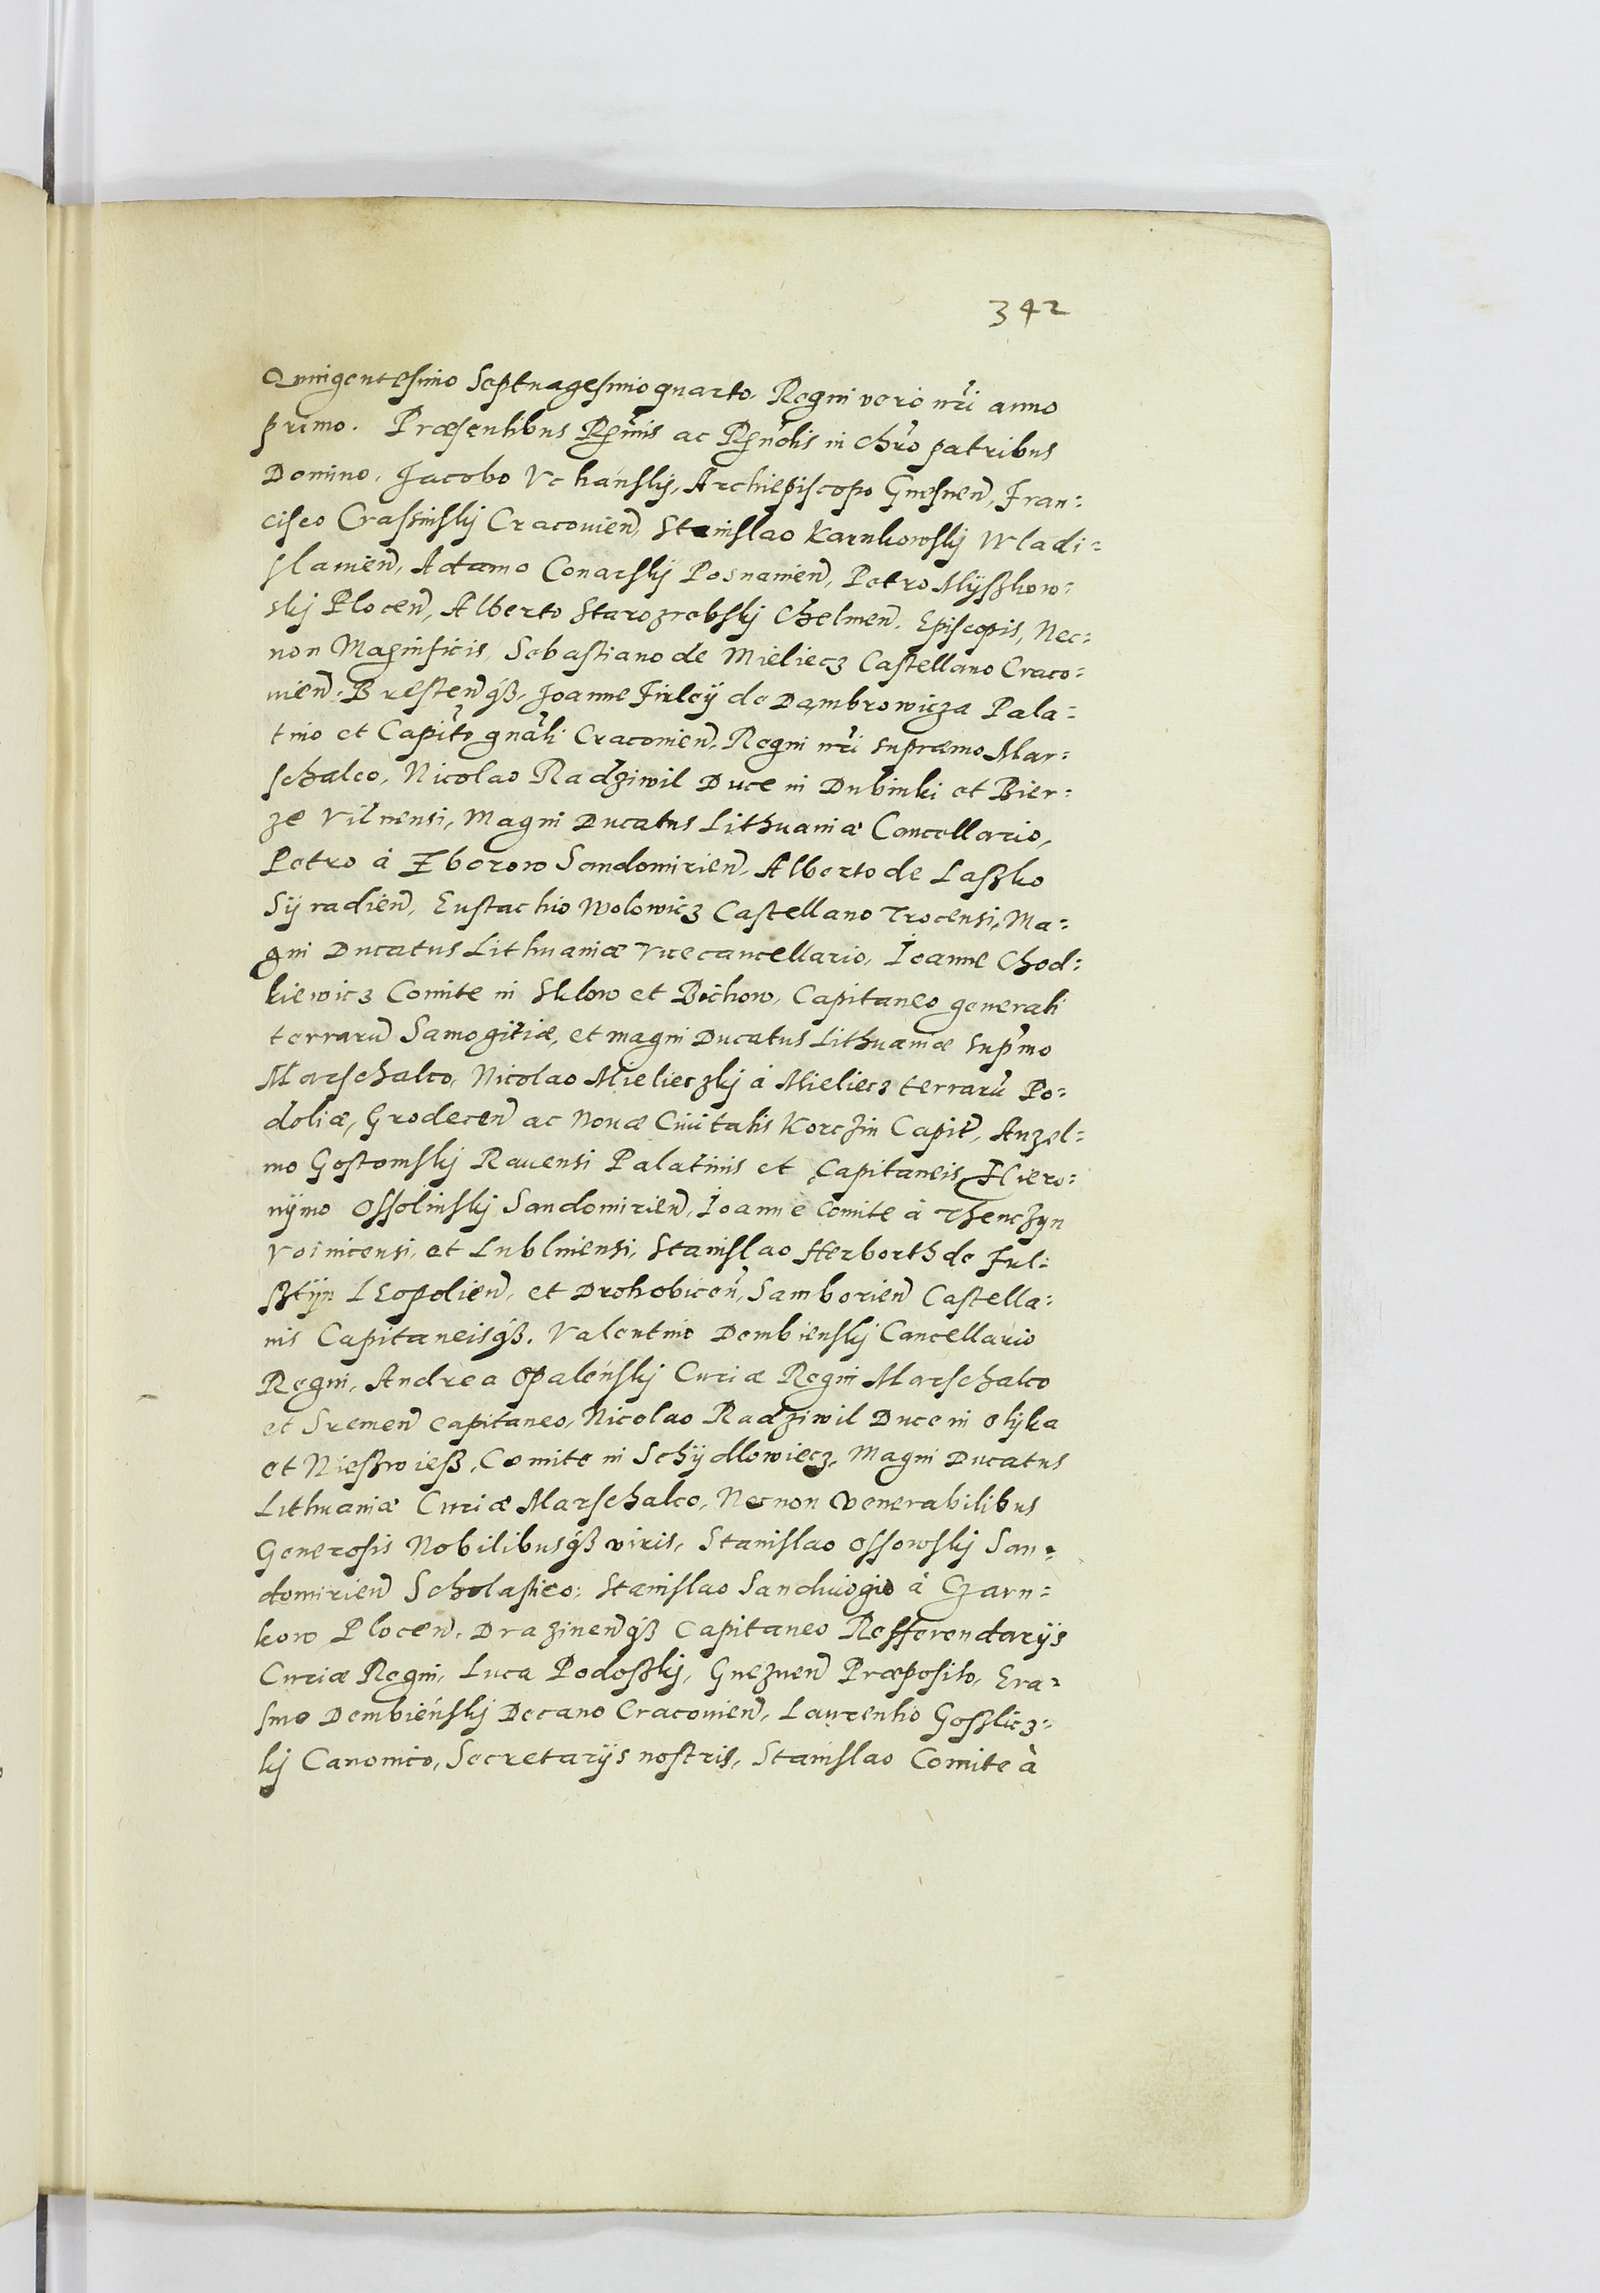 342
Quingentesimo Septuagesimoquarto, Regni vero nr̃i anno
primo. Præsentibus Rm̃is ac Rñdis in chr̃o patribus
Domino, Jacobo Vchański, Archiepiscopo Gnesnen̄, Fran=
cisco Crassinskÿ Cracouien̄, Stanislao Karnkowskÿ Wladi=
slauien̄, Adamo Conarskÿ Posnanien̄, Petro Mÿszkow=
skÿ Plocen̄, Alberto Starozrebskÿ Chelmen̄, Episcopis, Nec=
non Magnificis, Sebastiano de Mieliecz Castellano Craco=
uien̄, Bresten̄q́ꝫ, Joanne Firleÿ de Dąmbrowicza Pala=
tino et Capit̃o gnãli Cracouien̄, Regni nr̃i supræmo Mar=
schalco, Nicolao Radziwil Duce in Dubinki et Bier=
ze Vilnensi, Magni Ducatus Lithuaniæ Cancellario,
Petro à Zborow Sandomirien̄, Alberto de Laszko
Sÿradien̄, Eustachio Wolowicz Castellano Trocensi, Ma=
gni Ducatus Lithuaniæ Vicecancellario, Ioanne Chod=
kiewicz Comite in Sklow et Bichow, Capitaneo generali
terrarū Samogitiæ, et magni Ducatus Lithuaniæ sup̃mo
Marschalco, Nicolao Mielieczkÿ à Mieliecz terrarū Po=
doliæ, Grodecen̄ ac Nouæ Ciuitatis Korczin Capit̃, Anzel=
mo Gostomskÿ Rauensi Palatinis et Capitaneis, Hiero=
nÿmo Ossolinskÿ Sandomirien̄, Ioanne Comite à Thenczyn
Voinicensi, et Lublinensi, Stanislao Herborth de Ful=
sztÿn LEopolien̄, et Drohobicen̄, Samborien̄ Castella=
nis Capitaneisq́ꝫ. Valentino Dembienskÿ Cancellario
Regni, Andrea Opaleńskÿ Curiæ Regni Marschalco
et Sremen̄ capitaneo, Nicolao Radziwil Duce in Olÿka
et Nieszwiesz, Comite in Schÿdlowiecz, Magni Ducatus
Lithuaniæ Curiæ Marschalco, Necnon Venerabilibus
Generosis Nobilibusq́ꝫ viris, Stanislao Ossowskÿ San=
domirien̄ Scholastico, Stanislao Sandiuogio à Czarn=
kow Plocen̄, Drazinen̄q́ꝫ Capitaneo Refferendarÿs
Curiæ Regni, Luca Podoszkÿ, Gneznen̄ Præposito, Era=
smo Dembieńskÿ Decano Cracouien̄, Laurentio Goszlicz=
kÿ Canonico, Secretarÿs nostris, Stanislao Comite à